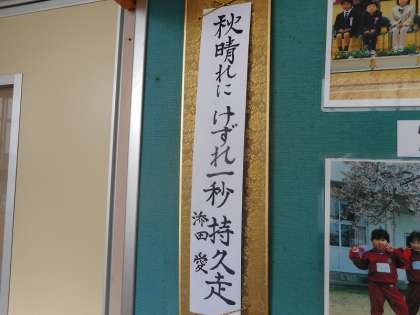 秋晴れに けずれ一秒 持久走
添田 愛